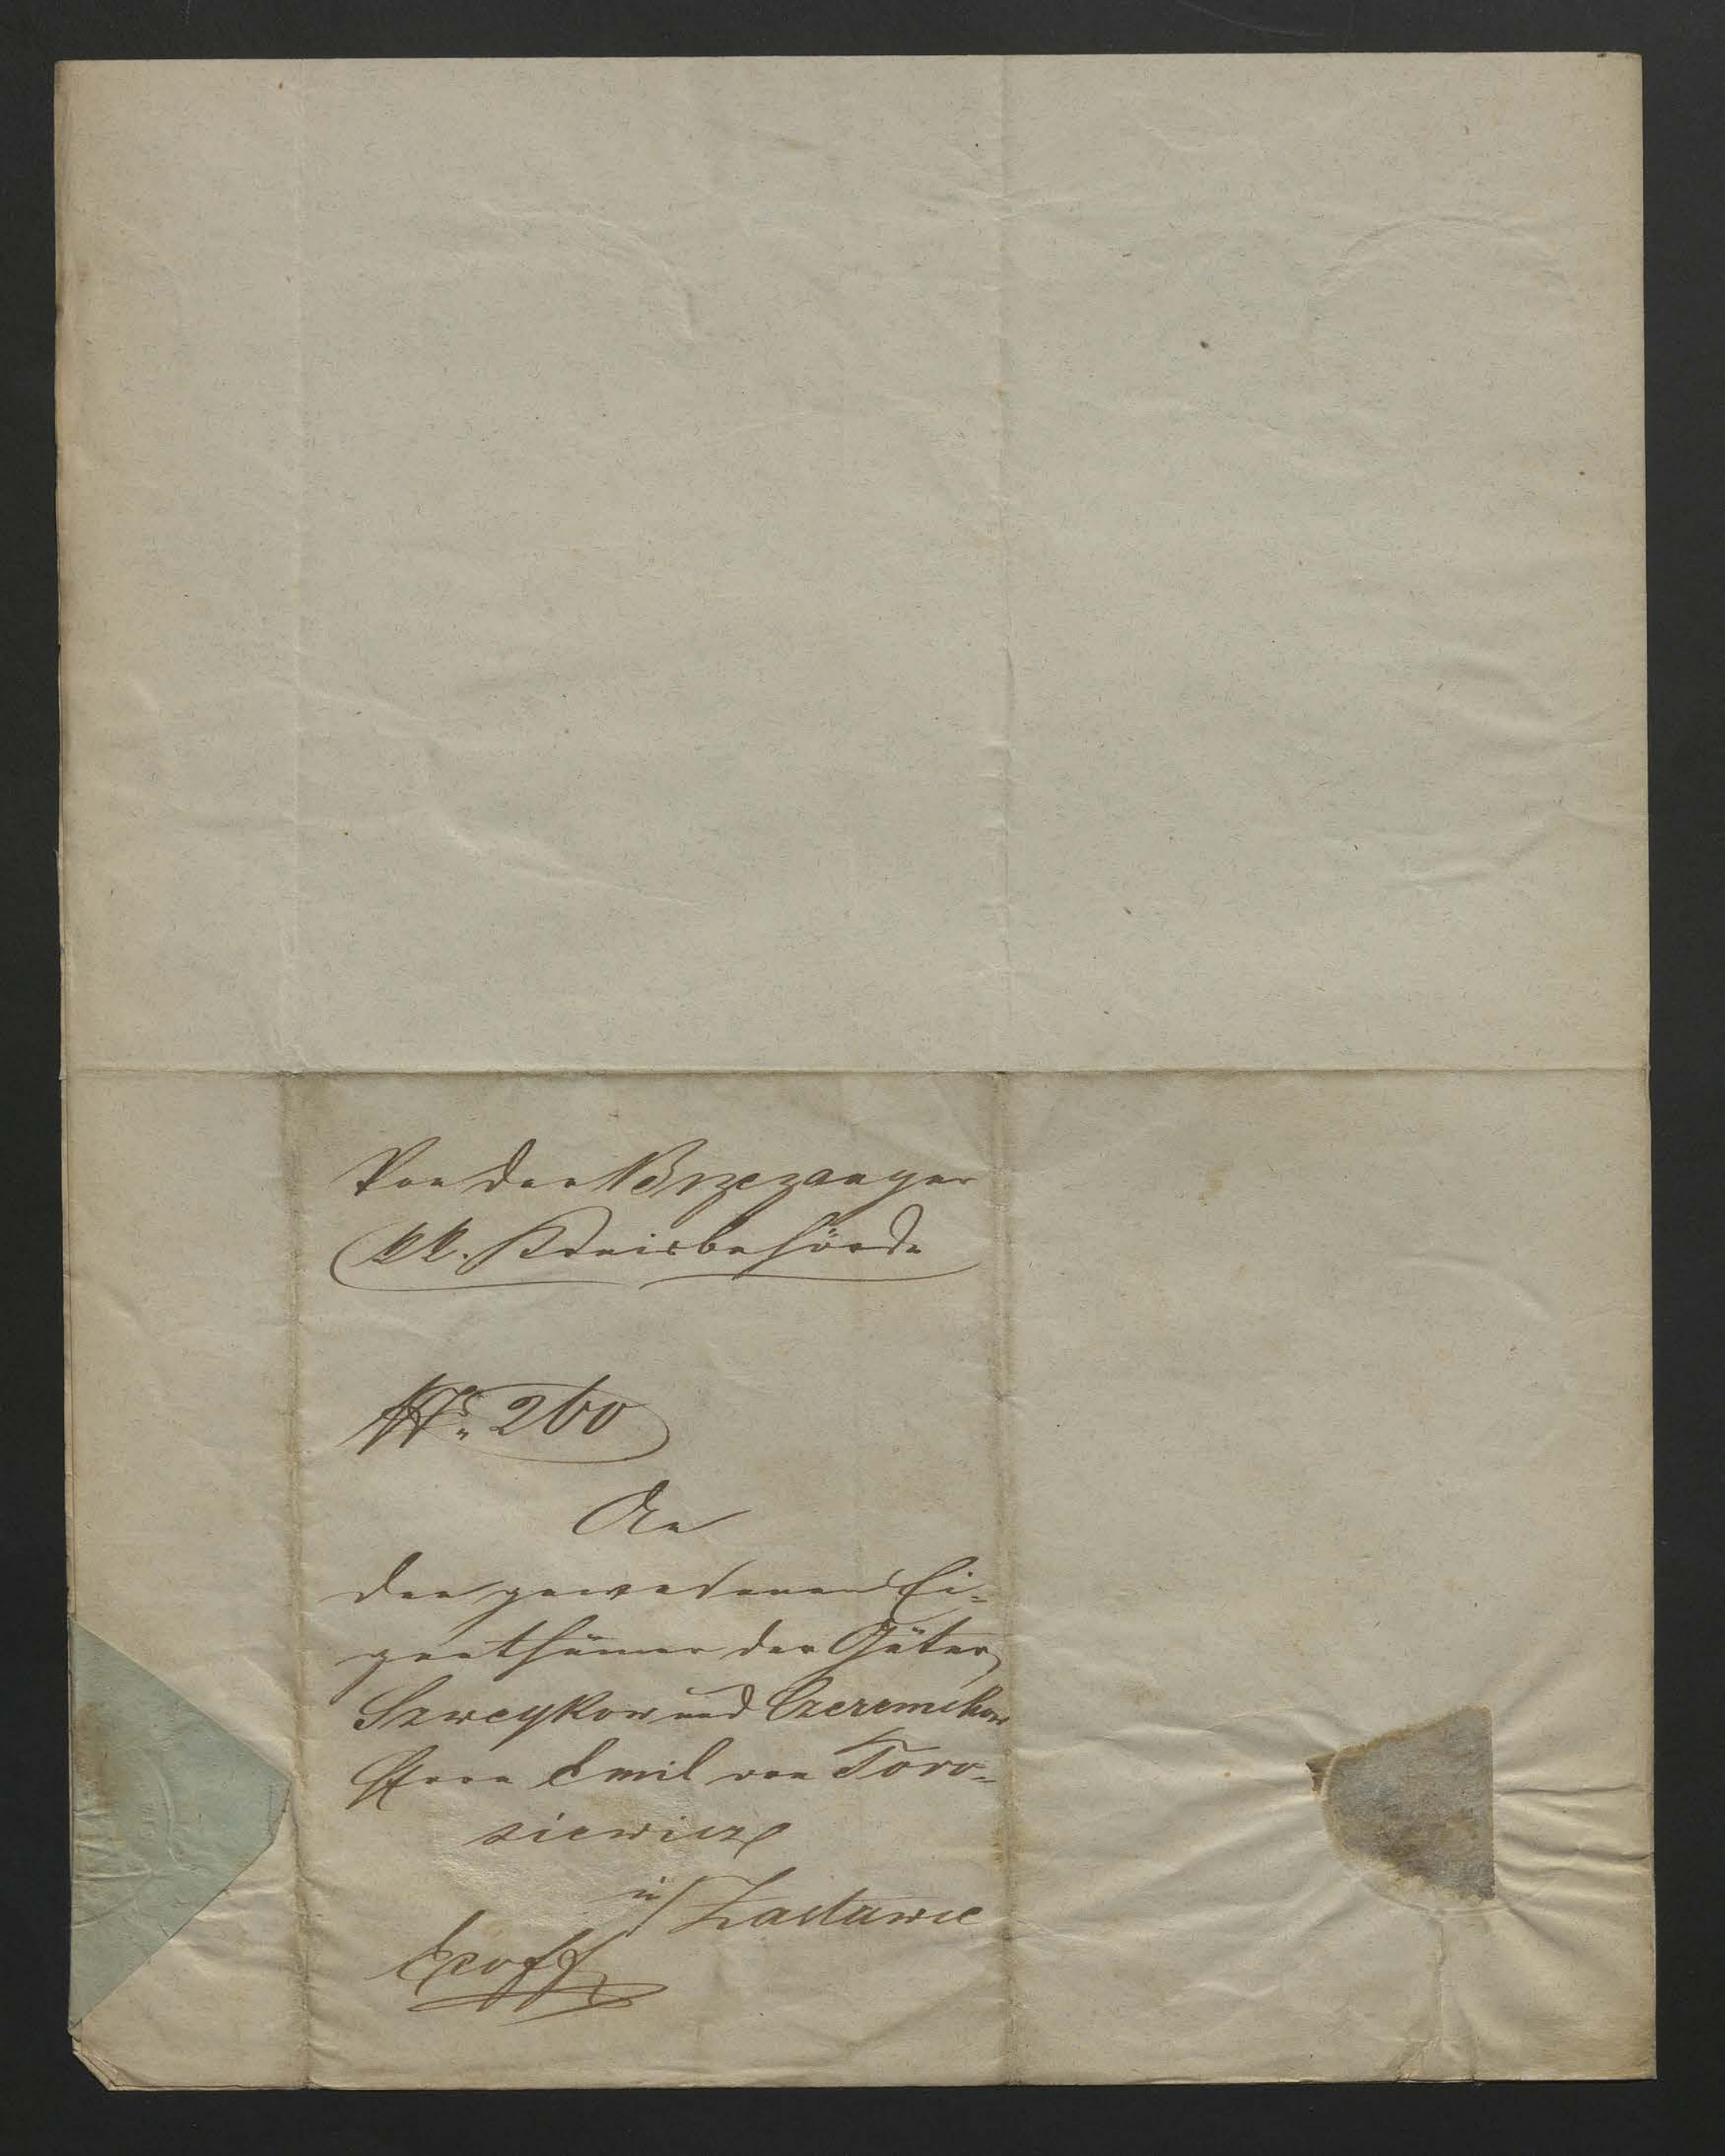 Von der Brzezanyer
kk. Kreisbehörde
No. 260
An
den gewesenen Ei=
genthümer der Güter
Szweykow und Czeremchow
Herrn Emil von Toro=
siewicz
in Zastawce
Exoff